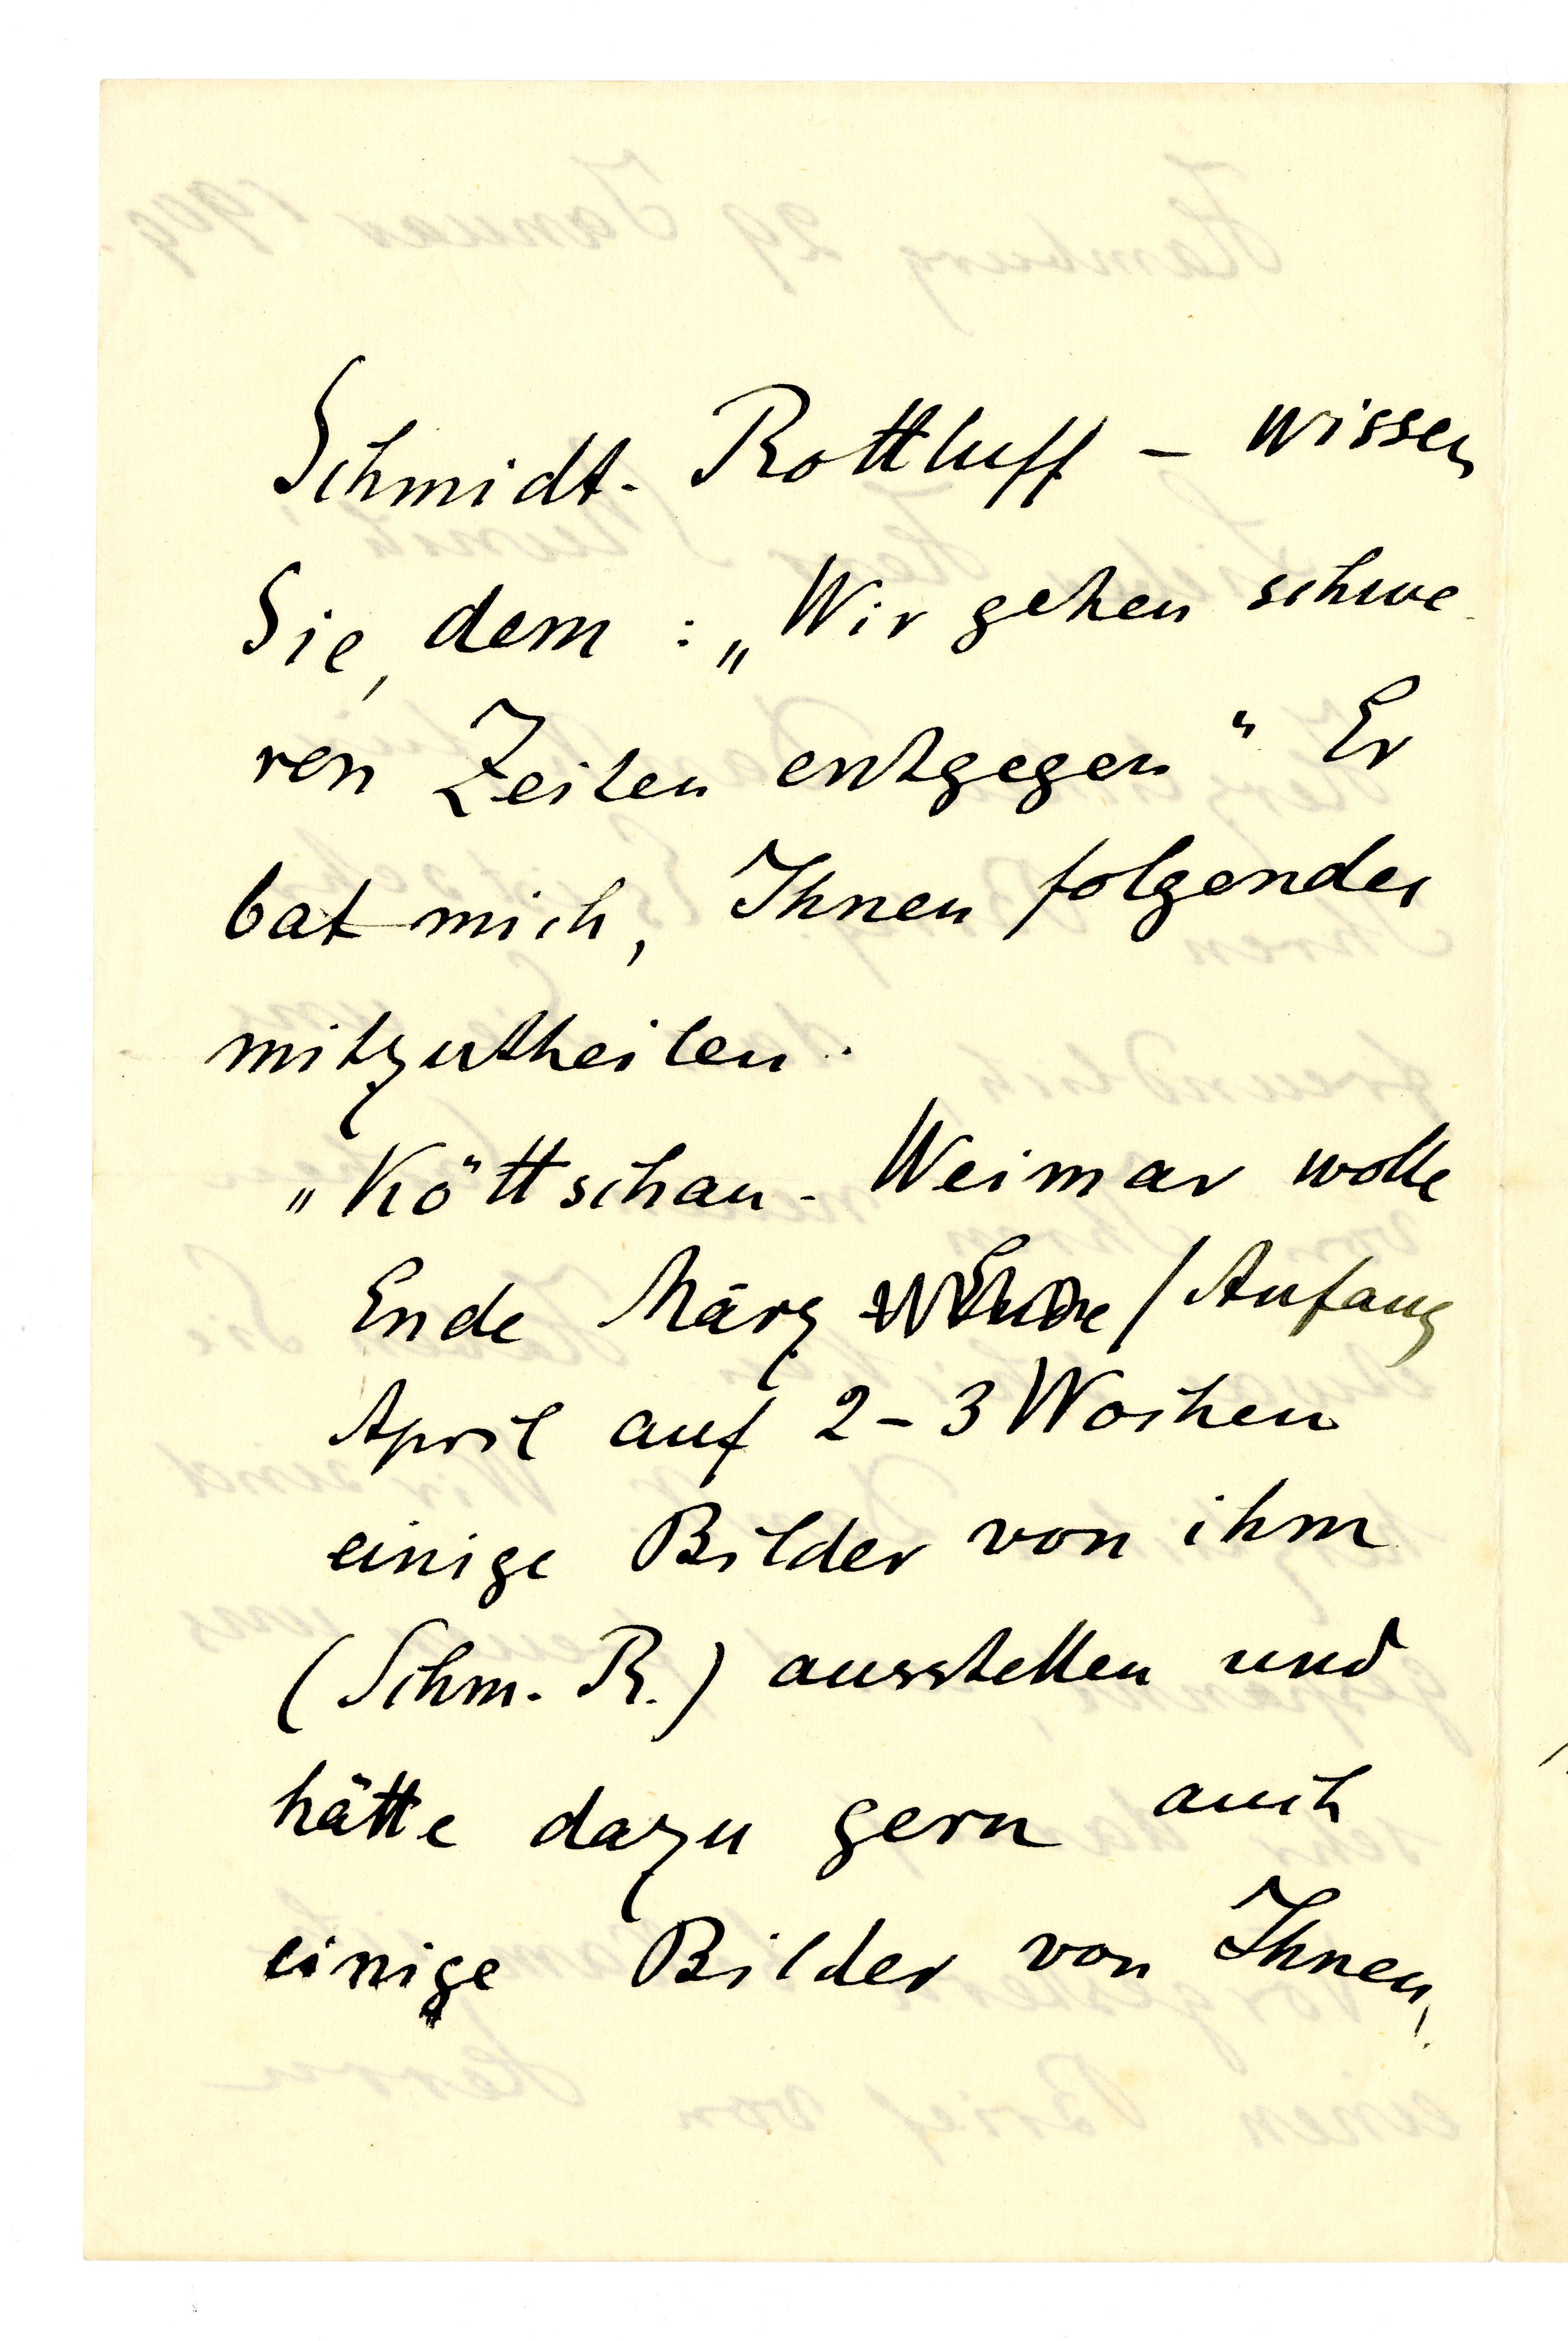 Schmidt-Rottluff – wissen
Sie, dem: „Wir gehen schwe-
ren Zeiten entgegen“ Er
bat mich, Ihnen folgendes
mitzutheilen.
„Köttschau-Weimar wolle
Ende März / Anfang
April auf 2–3 Wochen
einige Bilder von ihm
(Schm. R.) ausstellen und
hätte dazu gern auch
einige Bilder von Ihnen,